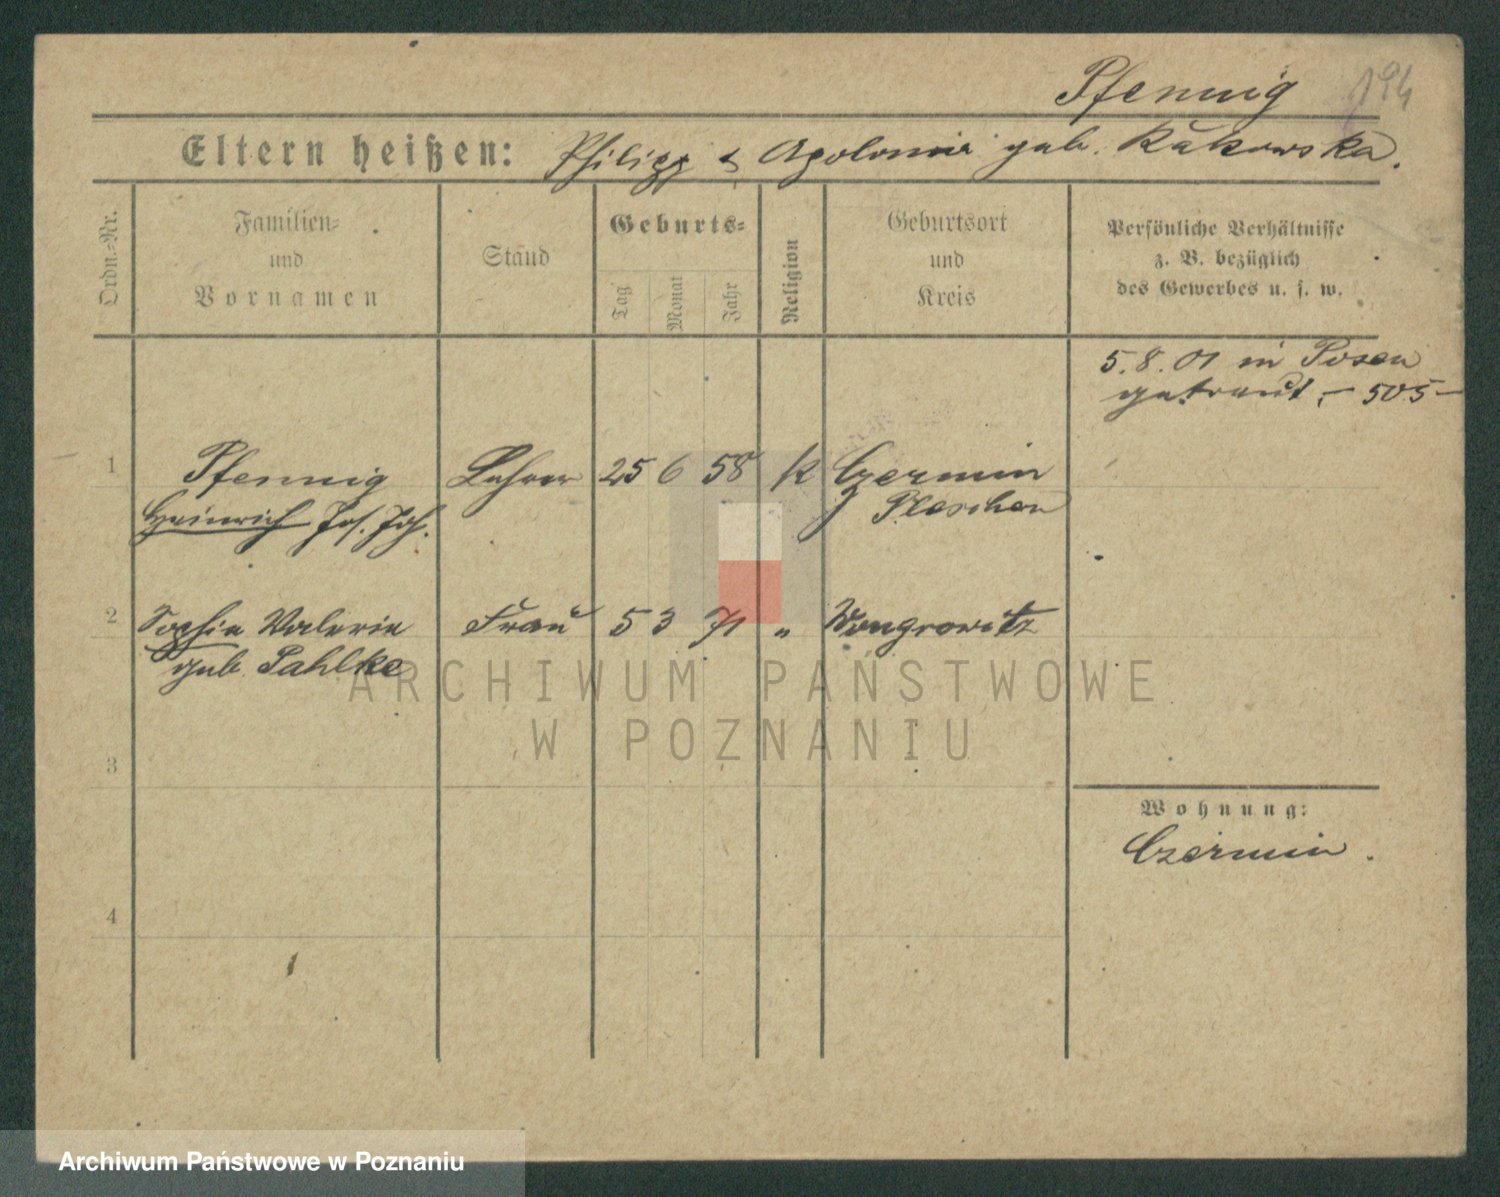 Pfennig 194
Eltern heißen: Philipp & Apolonia geb. Rakowska.
Ordn.-Nr.
Familien-
und
Vornamen
Stand
Geburts-
Tag
Monat
Jahr
Religion
Geburtsort
und
Kreis
Persönliche Verhältnisse
z. B. bezüglich
des Gewerbes u. s. w.
5.8.01 in Posen
getraut, – 505 –
1 Pfennig Lehrer 25 6 58 k Czermin
Heinrich Jos. Joh. Pleschen
2 Sophie Valerie Frau 5 3 71 " Wongrowitz
geb. Pahlke
ARCHIWUM PAŃSTWOWE
W POZNANIU
3
Wohnung:
Czermin.
4
Archiwum Państwowe w Poznaniu